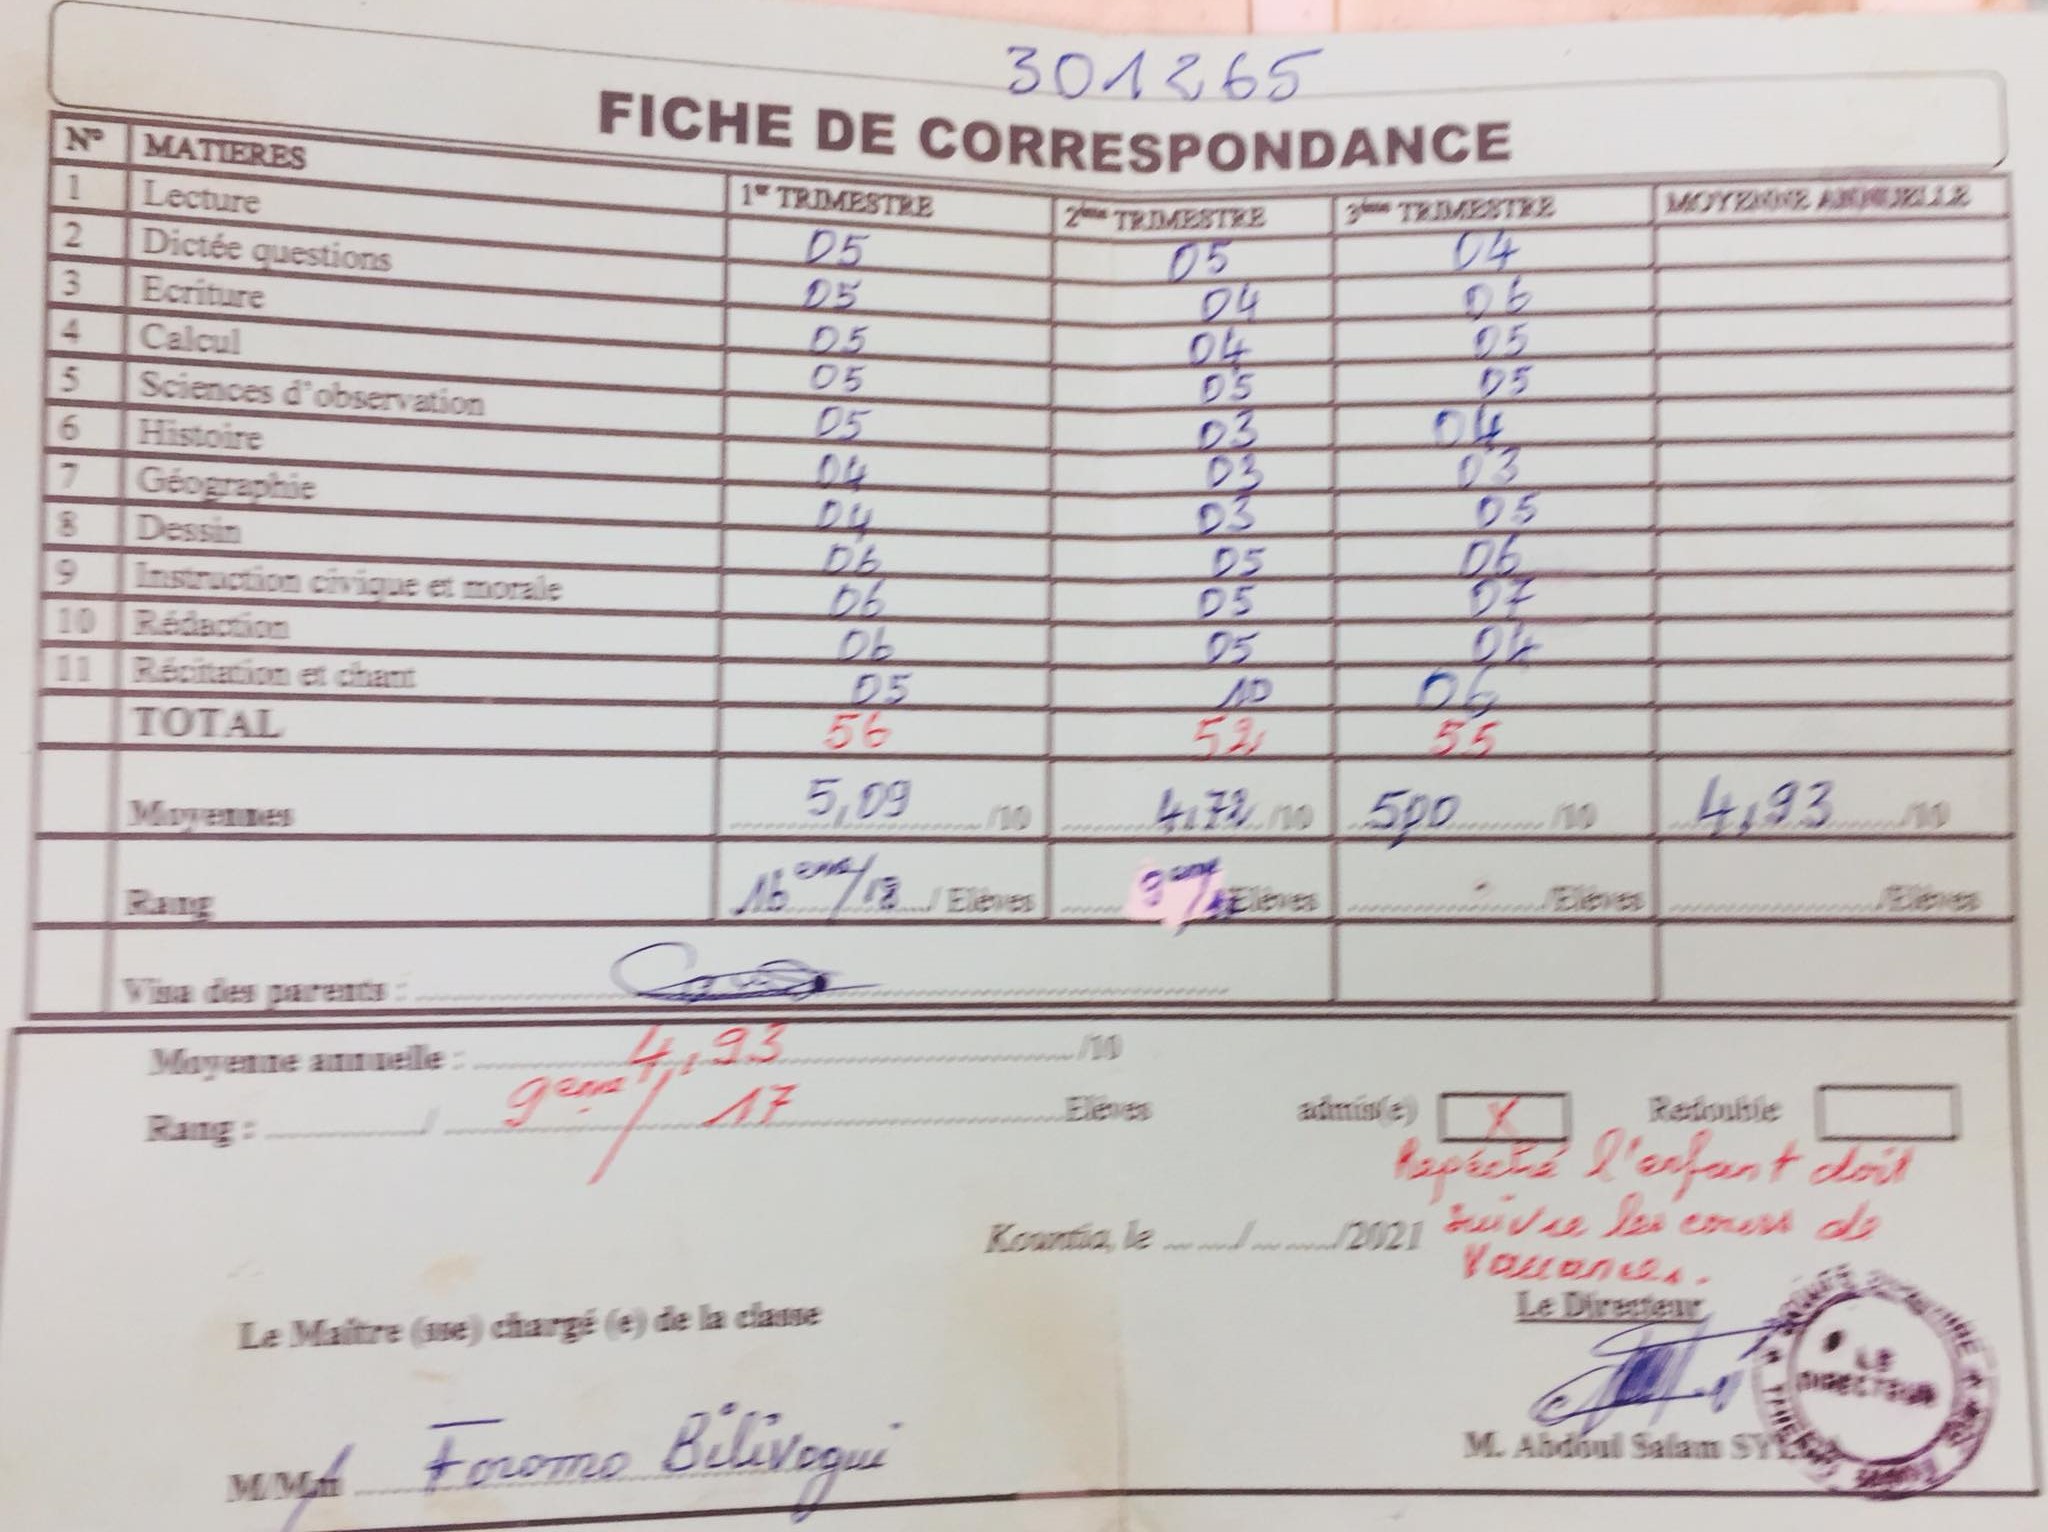 301265
FICHE DE CORRESPONDANCE
N° MATIERES 1er TRIMESTRE 2ème TRIMESTRE 3ème TRIMESTRE MOYENNE ANNUELLE
1 Lecture 05 05 04
2 Dictée questions 05 04 06
3 Ecriture 05 04 05
4 Calcul 05 05 05
5 Sciences d'observation 05 03 04
6 Histoire 04 03 03
7 Géographie 04 03 05
8 Dessin 06 05 06
9 Instruction civique et morale 06 05 07
10 Rédaction 06 05 04
11 Récitation et chant 05 10 06
TOTAL 56 52 55
Moyennes 5,09 /10 4,72 /10 5,00 /10 4,93 /10
Rang 16ème/18 / Elèves 9ème/ Elèves /Elèves /Elèves
Visa des parents :
Moyenne annuelle : 4,93 /10
Rang : / 9ème / 17 Elèves admis(e) X Redouble
Repéché l'enfant doit
suivre les cours de
Vacances.
Kountia, le ...../....../2021
Le Maître (sse) chargé (e) de la classe
Le Directeur
LE DIRECTEUR
M/Mm Foromo Bilivogui
M. Abdoul Salam